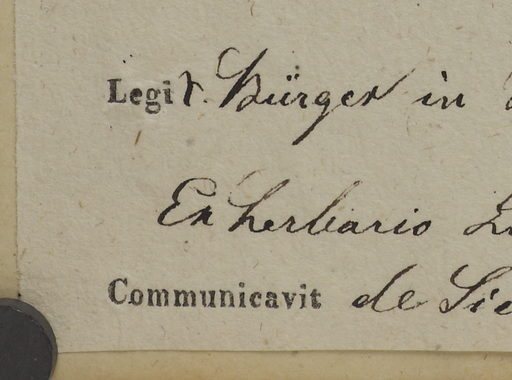 Legit. Bürger in
Ex herbario
Communicavit de